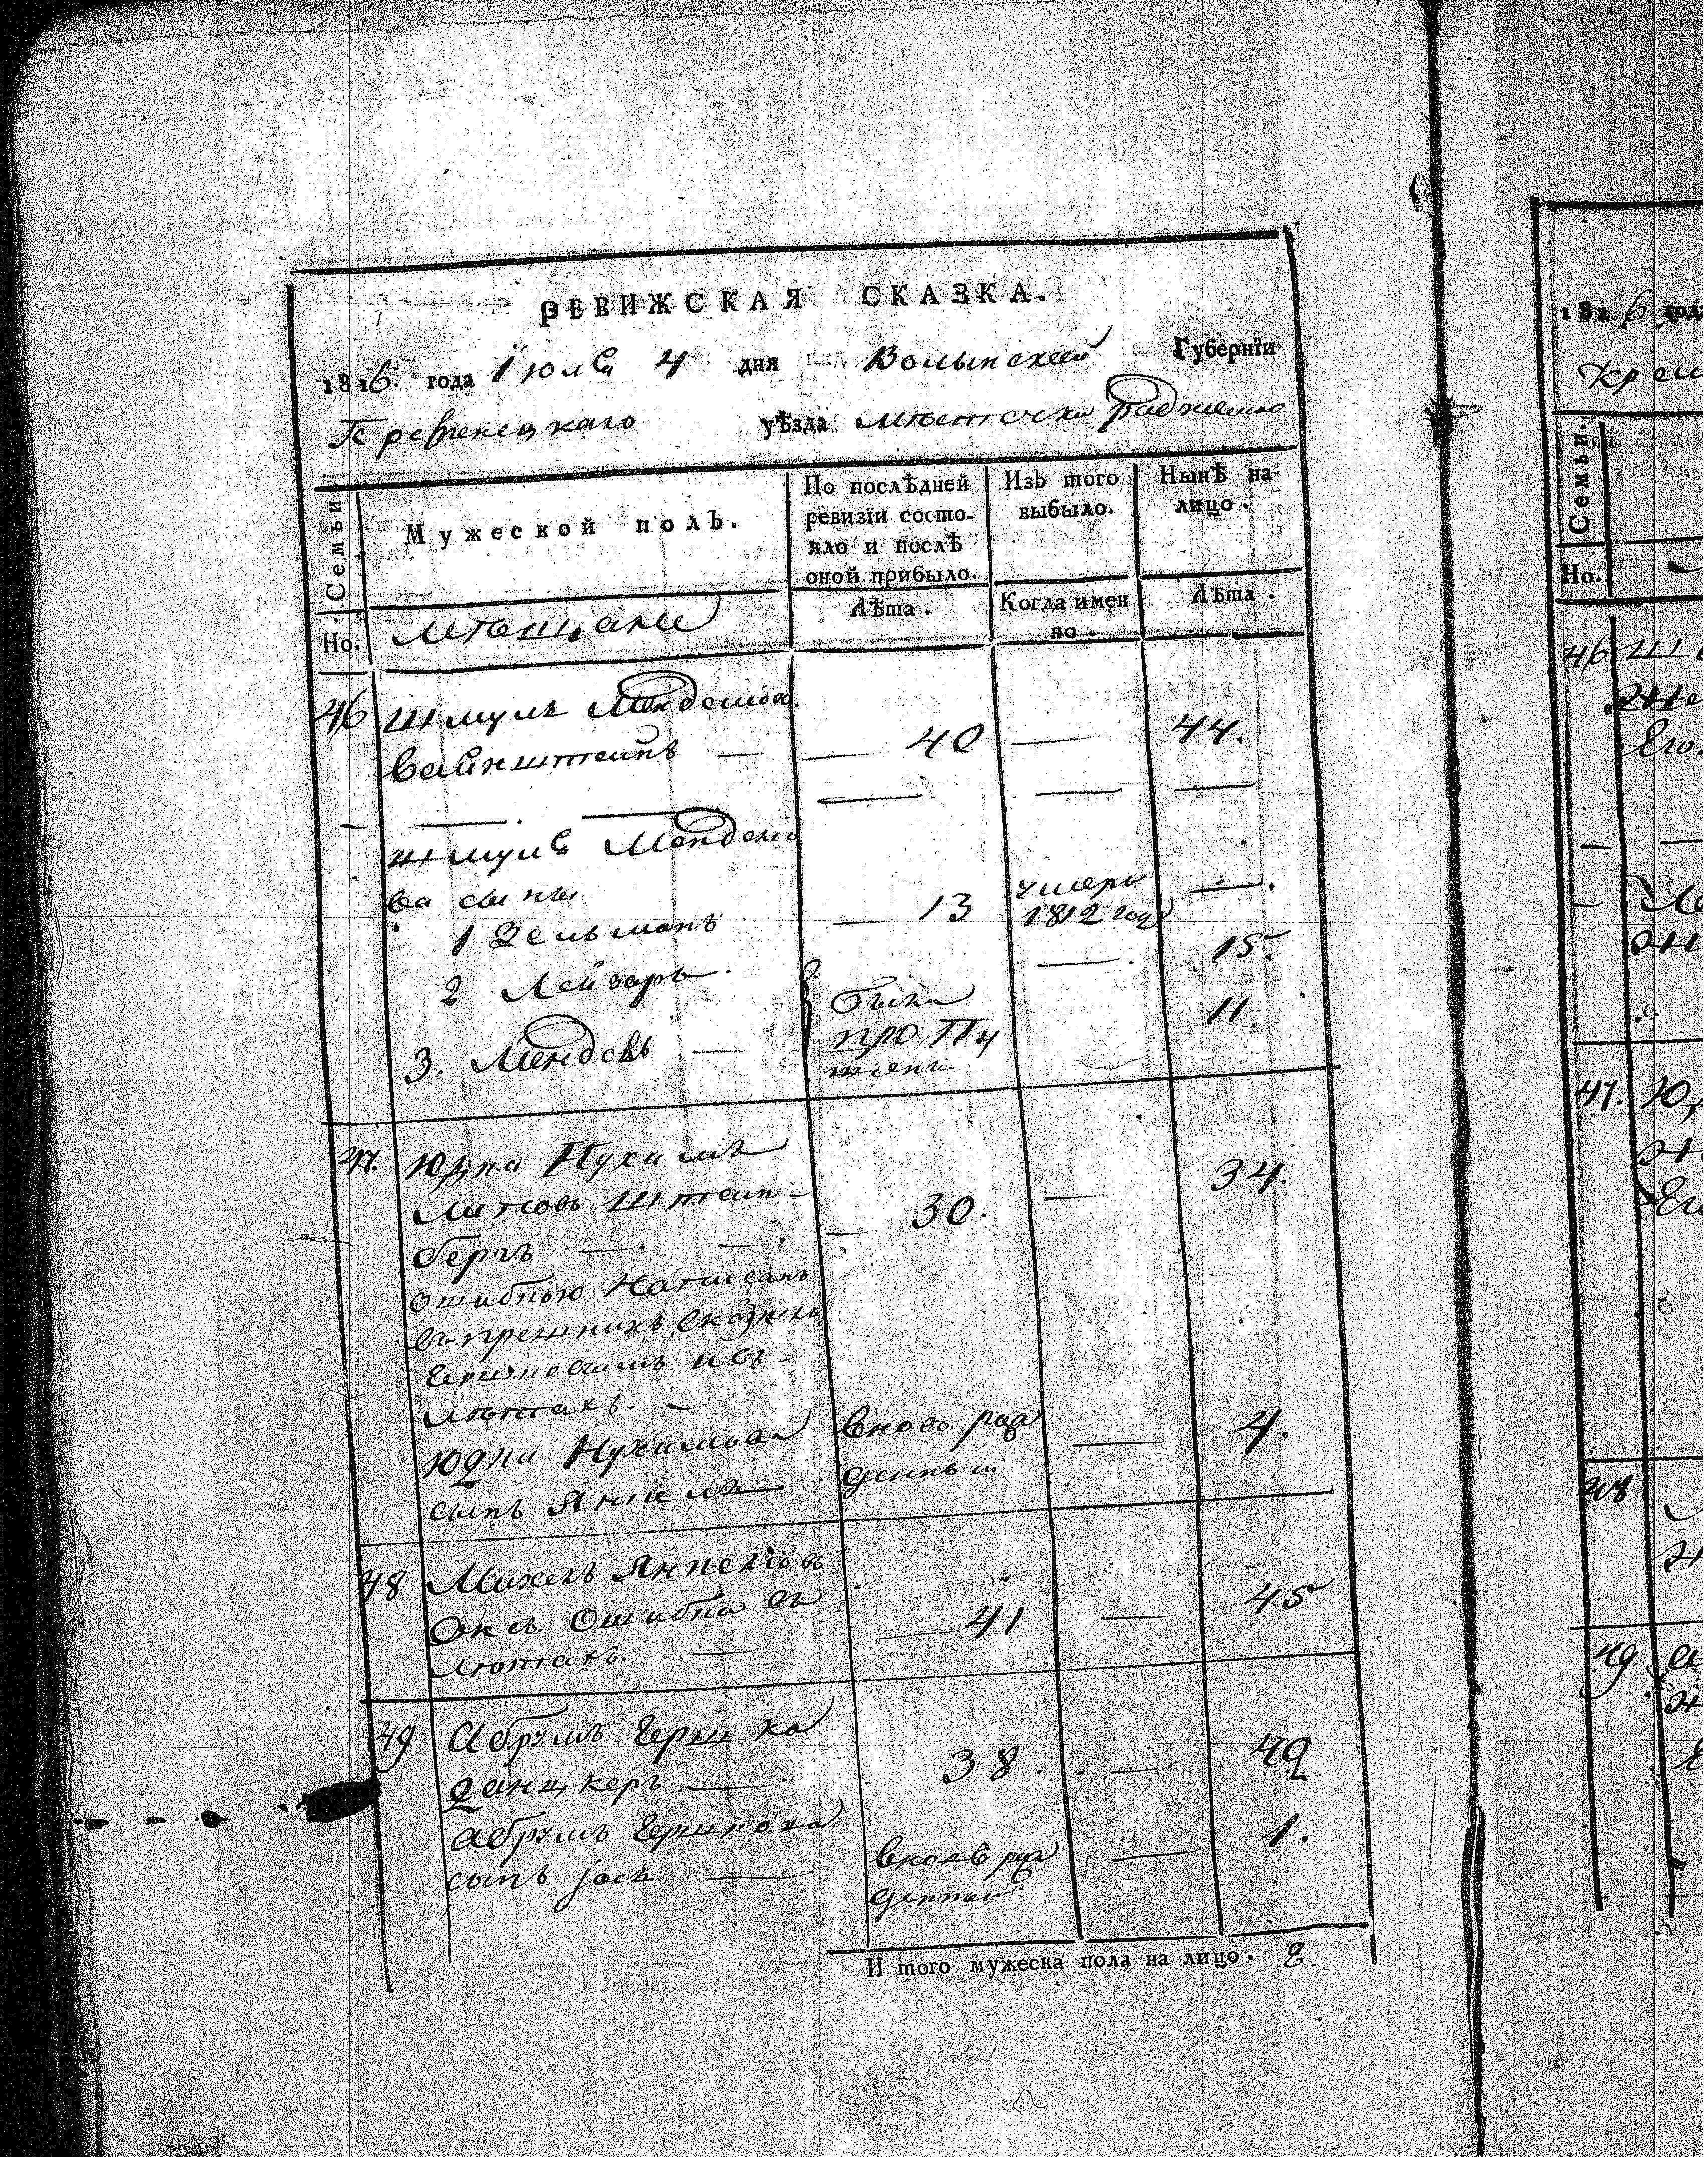 РЕВИЖСКАЯ СКАЗКА.
1816 года Июля 4 дня Волынской Губернїи
Кременецкаго уѣзда мѣстечка
Семьи
Мужеской полъ.
По послѣдней ревизїи состо-
яло и послѣ
оной прибыло.
Изъ того
выбыло.
Нынѣ на
лицо.
Но.
мѣщане
Лѣта.
Когда имен
но
Лѣта.
46 Шмуль Менделіов
Вайнштейнъ — 40 — 44.
Шмуля Менделіо
ва сыны
1 Зельманъ — 13 умеръ 1812 году —
2 Лейзоръ — 15.
3. Мендель — были пропущены 11
47. Юдка Нухимъ
Липовъ Штейн-
бергъ — 30. — 34.
ошибкою написанъ
въ прежнихъ сказкахъ
и въ
лѣтахъ. —
Юдки Нухимова
сынъ Янкель вновь рож
денный — 4.
48 Михель Янкеліовъ
Окс. Ошибка въ
лѣтахъ. — 41 — 45
49 Абрумъ Герш ка
Данцкеръ — 38. — 42
Абрумъ Гершкова
сынъ Іось — вновь рож
денный — 1.
И того мужеска пола на лицо. 8.
1816 год
Крем
Семьи.
Но.
46 Ш
Же
Его
47. Юд
Ег
48
49 А